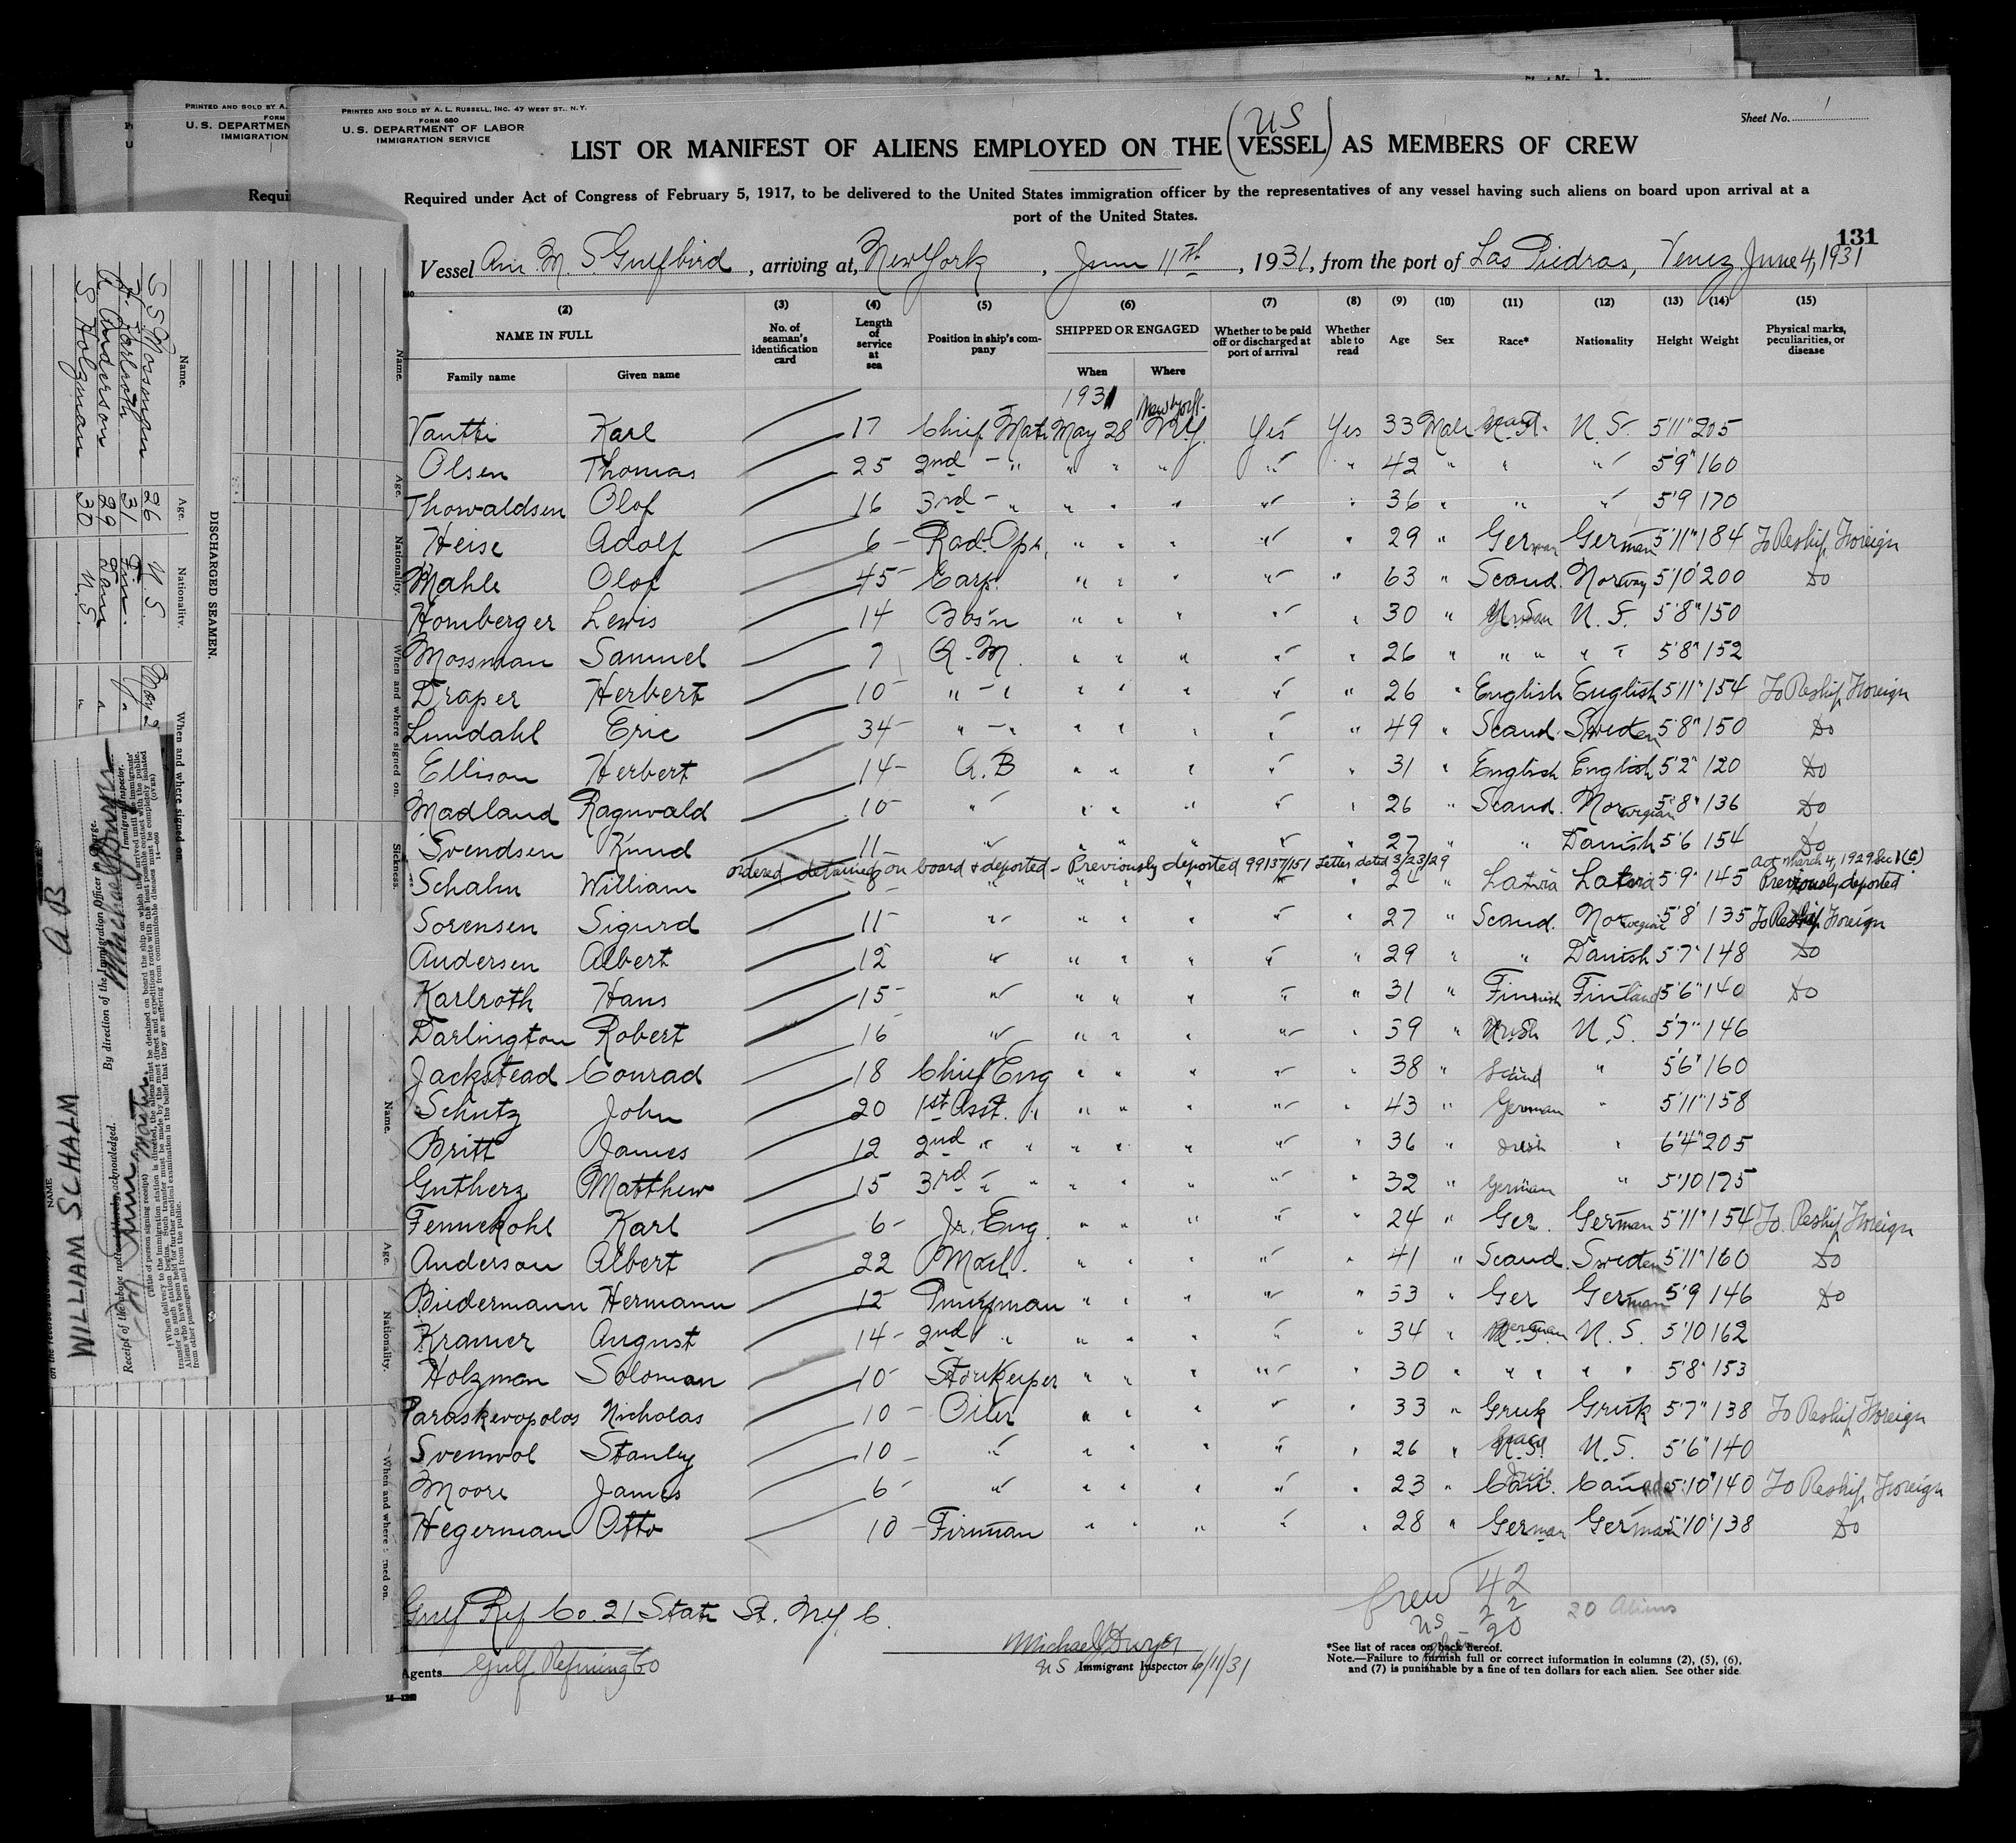 Sheet No. 1.
PRINTED AND SOLD BY A.
FORM
U.S. DEPARTMEN
IMMIGRATION
Requir
PRINTED AND SOLD BY A. L. RUSSELL, INC. 47 WEST ST., N.Y.
FORM 680
U. S. DEPARTMENT OF LABOR
IMMIGRATION SERVICE
Sheet No. 1
US
LIST OR MANIFEST OF ALIENS EMPLOYED ON THE (VESSEL) AS MEMBERS OF CREW
Required under Act of Congress of February 5, 1917, to be delivered to the United States immigration officer by the representatives of any vessel having such aliens on board upon arrival at a
port of the United States.
131
Vessel Am. M. S Gulfbird, arriving at, New York, June 11th, 1931, from the port of Las Piedras, Venez June 4, 1931
(2) (3) (4) (5) (6) (7) (8) (9) (10) (11) (12) (13) (14) (15)
NAME IN FULL
Family name Given name
No. of seaman's identification card
Length of service at sea
Position in ship's company
SHIPPED OR ENGAGED
When Where
Whether to be paid off or discharged at port of arrival
Whether able to read
Age
Sex
Race*
Nationality
Height
Weight
Physical marks, peculiarities, or disease
1931 New York
Vantti Karl 17 Chief Mate May 28 N.Y. Yes Yes 33 Male U.S. 5'11" 205
Olsen Thomas 25 2nd - " " " " " " 42 " " " 5'9" 160
Thowaldsen Olof 16 3rd - " " " " " " 36 " " " 5'9 170
Heise Adolf 6 - Rad. Opr. " " " " " 29 " German German 5'11" 184 To Reship Foreign
Mahle Olof 45 - Carp. " " " " " 63 " Scand. Norway 5'10" 200 Do
Homberger Lewis 14 Bos'n " " " " " 30 " German U. S. 5'8" 150
Mossman Samuel 7 Q. M. " " " " " 26 " " " " " 5'8" 152
Draper Herbert 10 - " - " " " " " " 26 " English English 5'11" 154 To Reship Foreign
Lundahl Eric 34 - " - " " " " " " 49 " Scand. Sweden 5'8" 150 Do
Ellison Herbert 14 - A. B " " " " " 31 " English English 5'2" 120 Do
Madland Ragnvald 10 - " " " " " " 26 " Scand. Norwegian 5'8" 136 Do
Svendsen Knud 11 - " " " " " " 27 " " Danish 5'6 154 Do
ordered detained on board & deported - Previously deported 99137/151 Letter dated 3/23/29 Act March 4, 1929 Sec 1(a)
Schalm William 8 - " " " " " " 24 " Latvia Latvia 5'9" 145 Previously deported
Sorensen Sigurd 11 - " " " " " " 27 " Scand. Norwegian 5'8" 135 To Reship Foreign
Andersen Albert 12 " " " " " " 29 " " Danish 5'7" 148 Do
Karlroth Hans 15 - " " " " " " 31 " Finnish Finland 5'6" 140 Do
Darlington Robert 16 " " " " " " 39 " Irish U. S. 5'7" 146
Jackstead Conrad 18 Chief Eng " " " " " 38 " Scand " 5'6" 160
Schutz John 20 1st Asst. " " " " " " 43 " German " 5'11" 158
Britt James 12 2nd " " " " " " " 36 " Irish " 6'4" 205
Gutherz Matthew 15 3rd " " " " " " " 32 " German " 5'10 175
Fennekohl Karl 6 - Jr. Eng. " " " " " 24 " Ger. German 5'11" 154 To Reship Foreign
Anderson Albert 22 Mach. " " " " " 41 " Scand. Sweden 5'11" 160 Do
Biedermann Hermann 12 - Pumpman " " " " " 33 " Ger German 5'9 146 Do
Kramer August 14 - 2nd " " " " " " 34 " German U. S. 5'10 162
Holzman Soloman 10 - Storekeeper " " " " " 30 " " " " " 5'8" 153
Paraskevopolos Nicholas 10 - Oiler " " " " " 33 " Greek Greek 5'7" 138 To Reship Foreign
Svenwol Stanley 10 - " " " " " " 26 " U.S. U. S. 5'6" 140
Moore James 6 - " " " " " " 23 " Irish Can. Canada 5'10" 140 To Reship Foreign
Hegerman Otto 10 - Fireman " " " " " 28 " German German 5'10" 138 Do
Gulf Ref Co 21 State St. N.Y. C.
Agents Gulf Refining Co
Michael J Dwyer
US Immigrant Inspector 6/11/31
Crew 42
US 22
Aliens 20
20 Aliens
*See list of races on back hereof.
Note.—Failure to furnish full or correct information in columns (2), (5), (6),
and (7) is punishable by a fine of ten dollars for each alien. See other side.
DISCHARGED SEAMEN.
Name. Age. Nationality. When and where signed on.
S. S. Mossman 26 U. S. May 2
H. Karlroth 31 Finn. "
A. Anderson 29 Dane "
S. Holzman 30 U. S. "
Name. Age. Nationality. When and where signed on. Sickness.
Name. Age. Nationality. When and where signed on.
NAME
WILLIAM SCHALM A B
By direction of the Immigration Officer in Charge.
Michael J Dwyer
Immigrant Inspector.
Receipt of the above notice is hereby acknowledged.
(Title of person signing receipt)